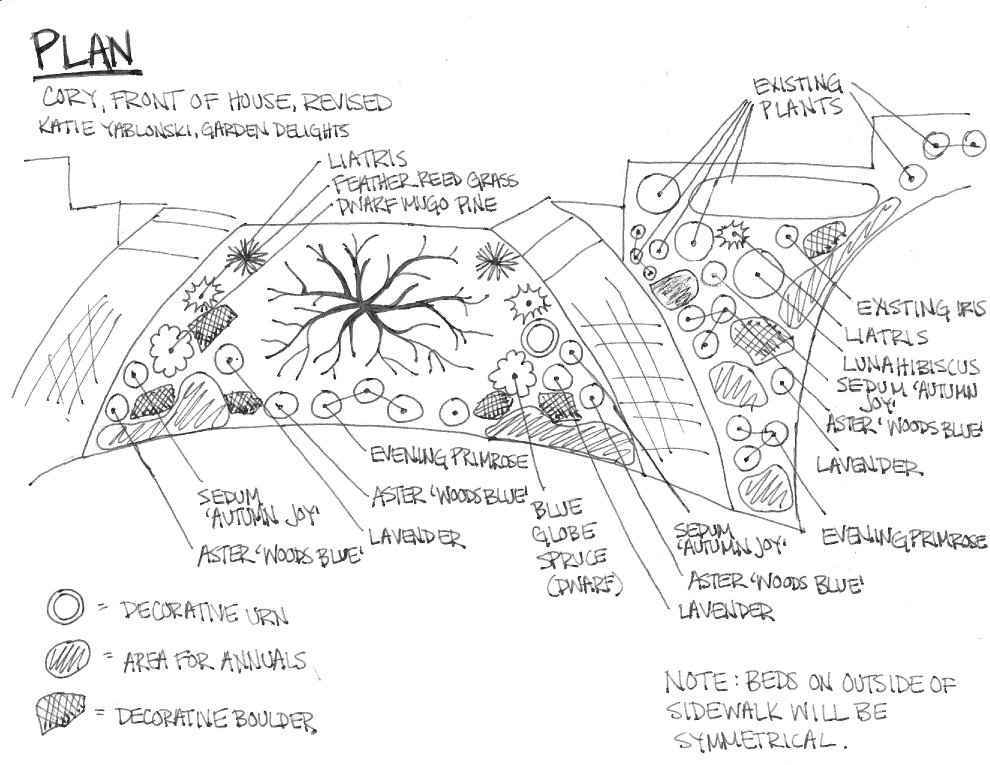 PLAN
CORY, FRONT OF HOUSE, REVISED
KATIE YABLONSKI, GARDEN DELIGHTS
EXISTING
PLANTS
LIATRIS
FEATHER REED GRASS
DWARF MUGO PINE
EXISTING IRIS
LIATRIS
LUNA HIBISCUS
SEDUM 'AUTUMN
JOY'
ASTER 'WOODS BLUE'
LAVENDER
EVENING PRIMROSE
EVENING PRIMROSE
ASTER 'WOODS BLUE'
LAVENDER
SEDUM
'AUTUMN JOY'
ASTER 'WOODS BLUE'
BLUE
GLOBE
SPRUCE
(DWARF)
SEDUM
'AUTUMN JOY'
ASTER 'WOODS BLUE'
LAVENDER
= DECORATIVE URN
= AREA FOR ANNUALS
= DECORATIVE BOULDER
NOTE: BEDS ON OUTSIDE OF
SIDEWALK WILL BE
SYMMETRICAL.